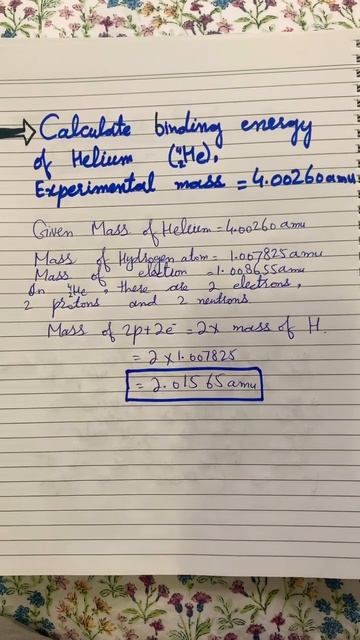 → Calculate binding energy
of Helium (⁴₂He),
Experimental mass = 4.00260amu
Given Mass of Helium = 4.00260 amu
Mass of Hydrogen atom = 1.007825 amu
Mass of electron = 1.008655amu
In ⁴₂He, these are 2 electrons,
2 protons and 2 neutrons.
Mass of 2p + 2e⁻ = 2x mass of H.
= 2 x 1.007825
= 2.01565 amu